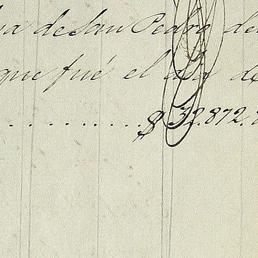 de San Pedro de
que fué el día de
$ 32.872.